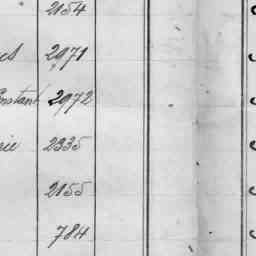 2154
2971
onstant 2972
rie 2335
2155
784